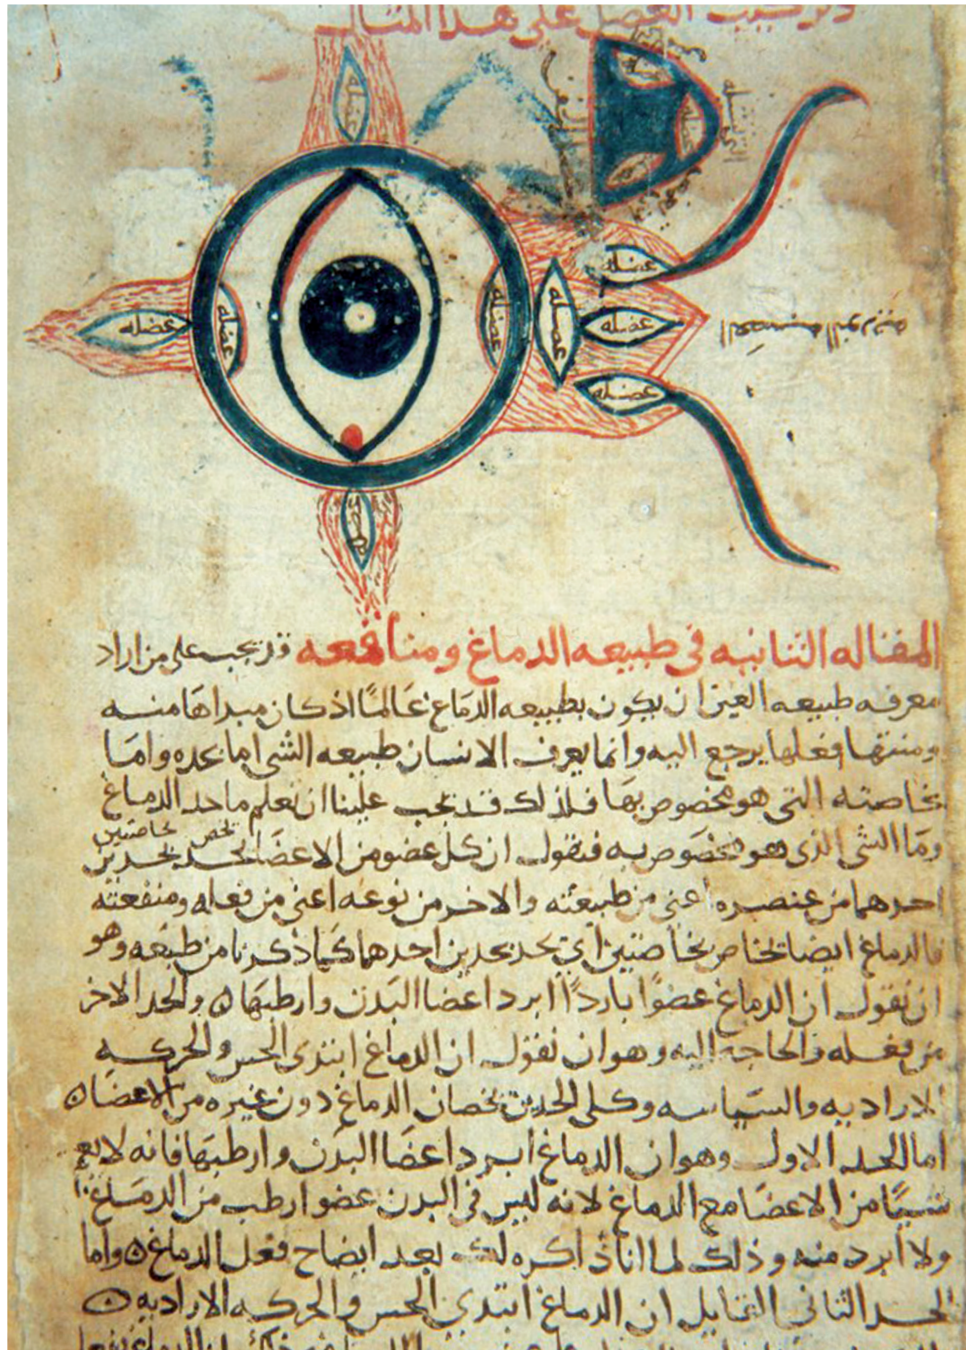 تركيب العضل على هذا المثال
عضله
عضله
عضله
عضله
عضله
عضله
عضله
عضله
عضله
عضله
المقاله الثانيه فى طبيعه الدماغ ومنافعه قد يجب على من اراد
معرفه طبيعه العين ان يكون بطبيعه الدماغ عالمًا اذ كان مبداها منه
ومنتها فعلها يرجع اليه وانما يعرف الانسان طبيعه الشى اما بحده واما
بخاصته التى هو مخصوص بها فلذلك قد يجب علينا ان نعلم ما حد الدماغ
وما الشى الذى هو مخصوص به فنقول ان كل عضو من الاعضا يحد بحدين
يخص بخاصتين
احدهما من عنصره اعنى من طبيعته والاخر من نوعه اعنى من فعله ومنفعته
فالدماغ ايضا يخاص بخاصتين اى يحد بحدين احدهما كما ذكرنا من طبعه وهو
ان نقول ان الدماغ عضوًا باردًا ابرد اعضا البدن وارطبها ه والحد الاخر
من فعله والحاجه اليه وهو ان نقول ان الدماغ ابتدى الحس والحركه
الاراديه والسياسه وكلى الحدين يخصان الدماغ دون غيره من الاعضا ه
اما الحد الاول وهو ان الدماغ ابرد اعضا البدن وارطبها فانه لا يعم
شيًا من الاعضا مع الدماغ لانه ليس فى البدن عضو ارطب من الدماغ
ولا ابرد منه وذلك لما انا ذاكره لك بعد ايضاح فعل الدماغ ه واما
الحد الثانى القايل ان الدماغ ابتدى الحس والحركه الاراديه ه